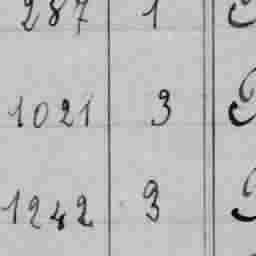 287 1
1021 3
1242 3